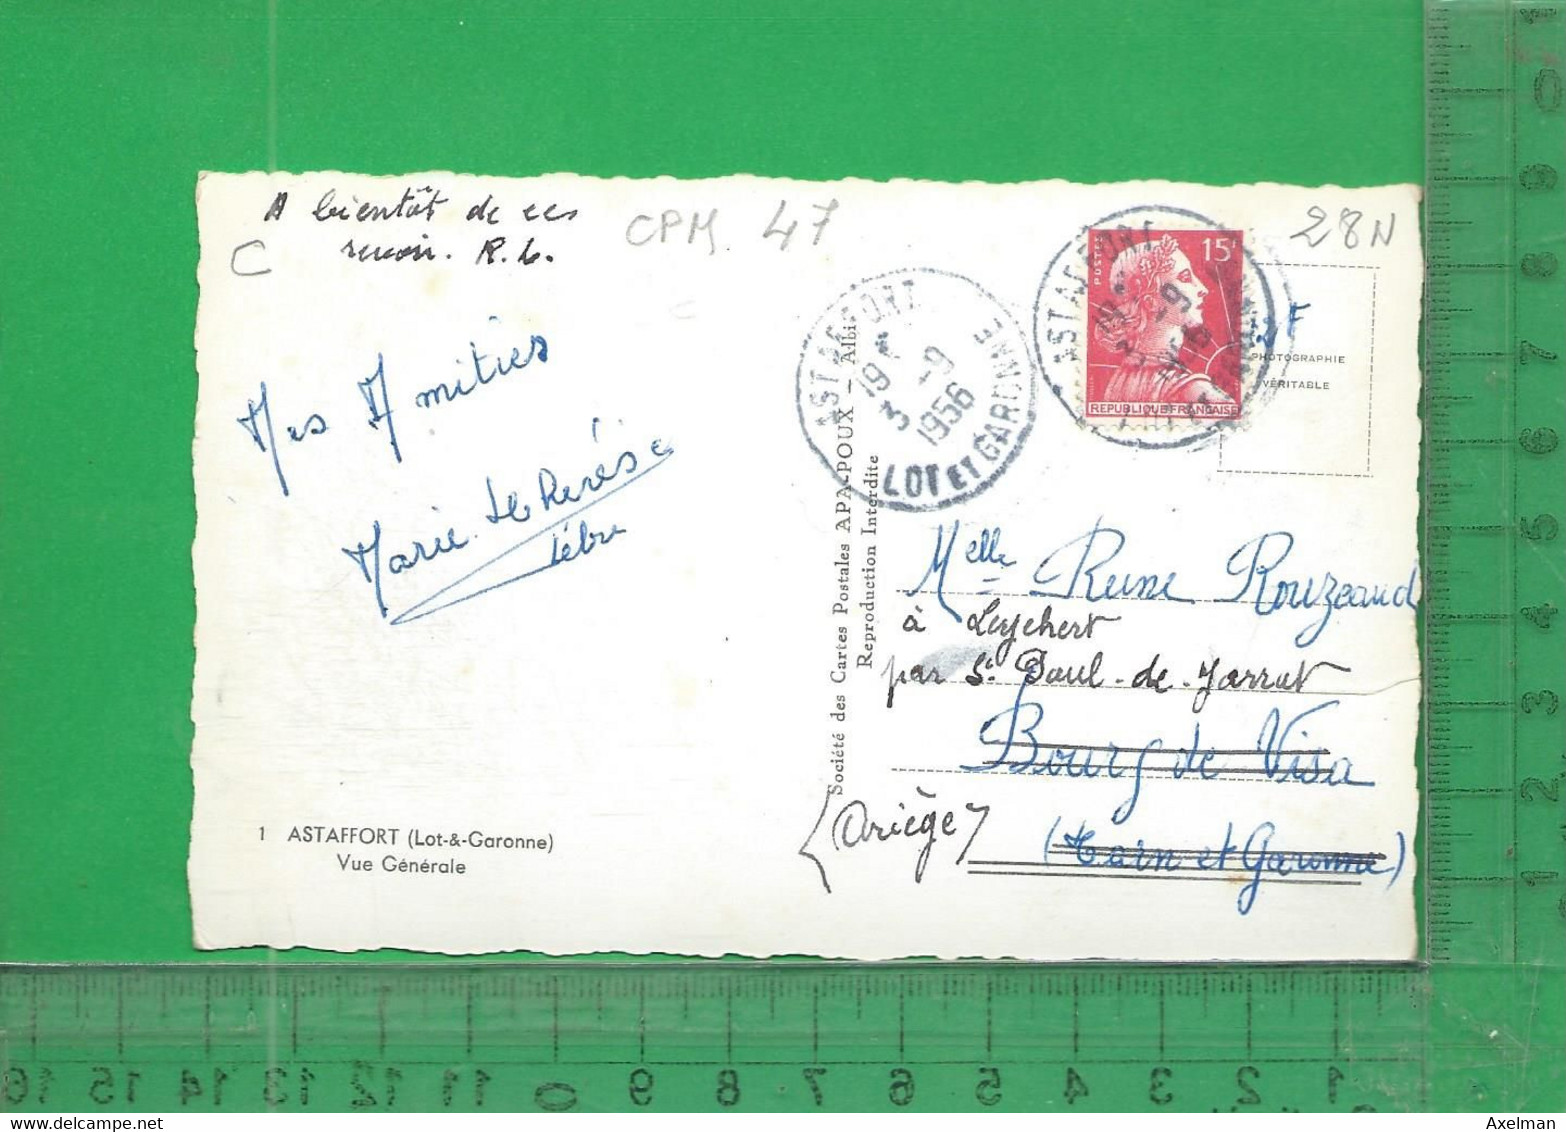 A bientôt de
revoir. R. L.
C
CPM 47
28N
Mes Amitiés
Marie Thérèse
15F
POSTES
REPUBLIQUE FRANÇAISE
ASTAFFORT
19 H
3 -9
1956
LOT ET GARONNE
ASTAFFORT
PHOTOGRAPHIE
VÉRITABLE
Société des Cartes Postales APA-POUX — Albi
Reproduction Interdite
Melle Rouzeaud
à Leychert
par St Paul-de-Jarrat
Bourg de Visa
(Ariège)
(Tarn et Garonne)
1 ASTAFFORT (Lot-&-Garonne)
Vue Générale
16 15 14 13 12 11 0 9 8 7 6 5 4 3 2 1
0
9
8
7
6
5
4
3
2
1
Axelman